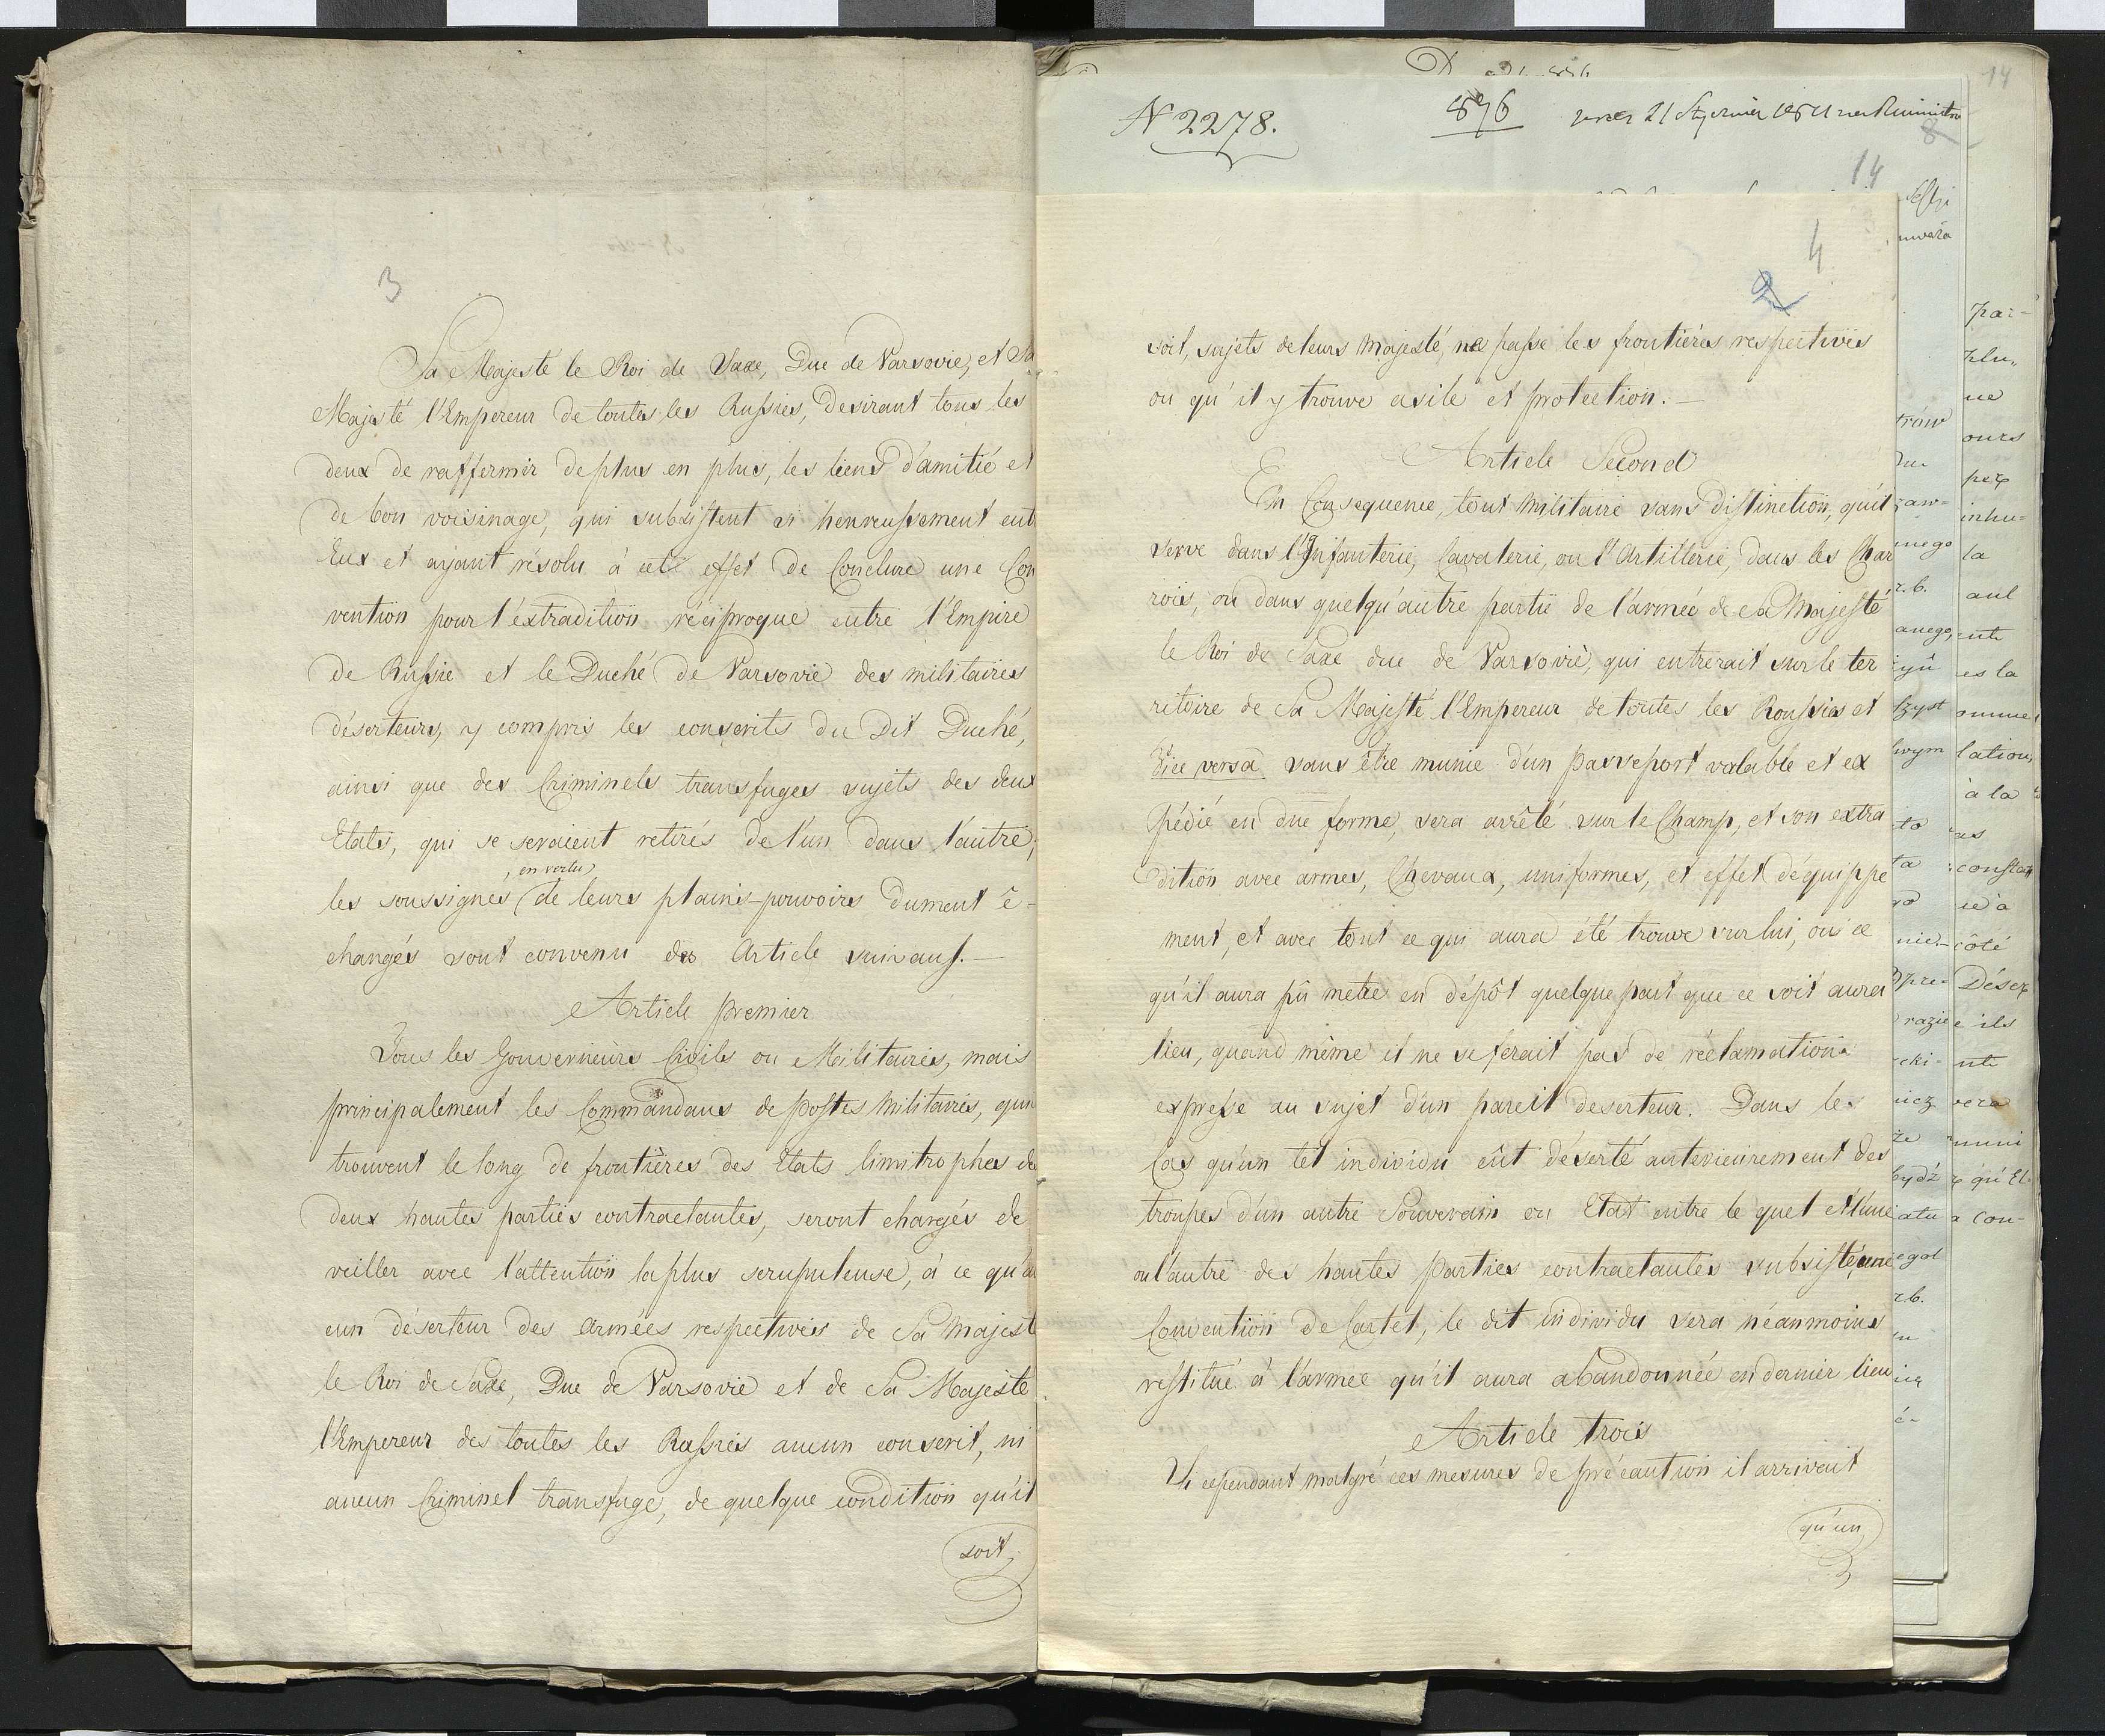 3
Sa Majesté le Roi de Saxe, Duc de Varsovie, et Sa
Majesté l'Empereur de toutes les Russies, desirant tous les
deux de raffermir de plus en plus, les liens d'amitié et
de bon voisinage, qui subsistent si heureussement ent
Eux et ajant résolu à cet effet de Conclure une Con
vention pour l'éxtradition réciproque entre l'Empire
de Russie et le Duché de Varsovie des militaires
déserteurs, y compris les conscrits du Dit Duché,
ainsi que des Criminels transfuges sujets des deux
Etats, qui se seraient retirés de l'un dans l'autre,
, en vertu
les soussignes de leurs plains-pouvoirs dument é-
changés sont convenu des Article suivans.—
Article premier
Tous les Gouverneurs Civils ou Militaires, mais
principalement les Commandans de postes militaires, qui
trouvent le long de frontières des Etats limitrophes de
deux hautes parties contractantes, seront chargés de
veiller avec l'attention la plus scrupuleuse, à ce qu'au
cun déserteur des armées respectives de Sa Majest
le Roi de Saxe, Duc de Varsovie et de Sa Majesté
l'Empereur des toutes les Russies aucun conscrit, ni
aucun Criminel transfuge, de quelque condition qu'il
soit,
N 2278.
876
14
14
8
4
2
soit, sujets de leurs Majesté, ne passe les frontières respectives
ou qu'il y trouve asile et protection.—
Article Second
En Consequence, tout militaire sans distinction, qu'il
serve dans l'Infanterie, Cavalerie, ou l'Artillerie, dans les Char
rois, ou dans quelqu'autre partie de l'armée de Sa Majesté
le Roi de Saxe duc de Varsovie, qui entrerait sur le ter
ritoire de Sa Majesté l'Empereur de toutes les Roussies et
vice versa sans être munie d'un passeport valable et ex
pédié en due forme, sera arrêté sur le Champ, et son extra
dition avec armes, Chevaux, uniformes, et effet d'équippe
ment, et avec tout ce qui aura été trouve sur lui, ou ce
qu'il aura pû metre en dépôt quelque part que ce soit aura
lieu, quand même il ne se ferait pas de réclamation
expresse au sujet d'un pareil deserteur. Dans le
Cas qu'un tel individu eût déserté anterieurement des
troupes d'un autre Souverain ou Etat entre le quel et l'une
ou l'autre des hautes parties contractantes subsiste, une
Convention de Cartel, le dit individu sera néanmoins
restitué à l'armée qu'il aura abandonnée en dernier lieu
Article trois
Si cependant malgré ces mesures de précaution il arrivait
qu'un